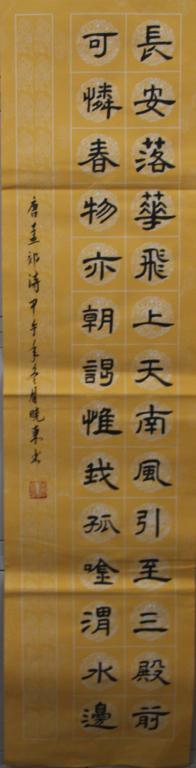 長安落華飛上天南風引至三殿前
可憐春物亦朝謁惟我孤吟渭水邊
唐孟郊詩甲午年冬月曉東書